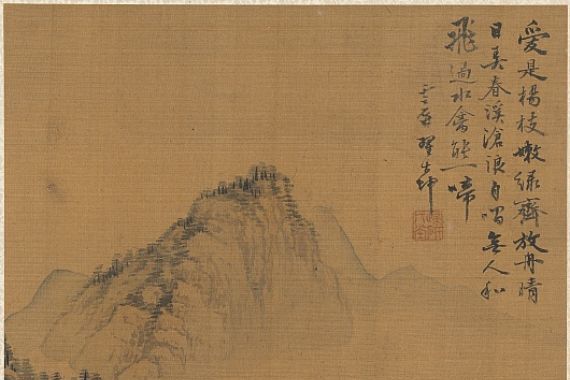 愛是楊枝嫩綠齊放舟晴
日弄春溪滄浪自唱無人和
飛過水禽能一啼
雲屏翟